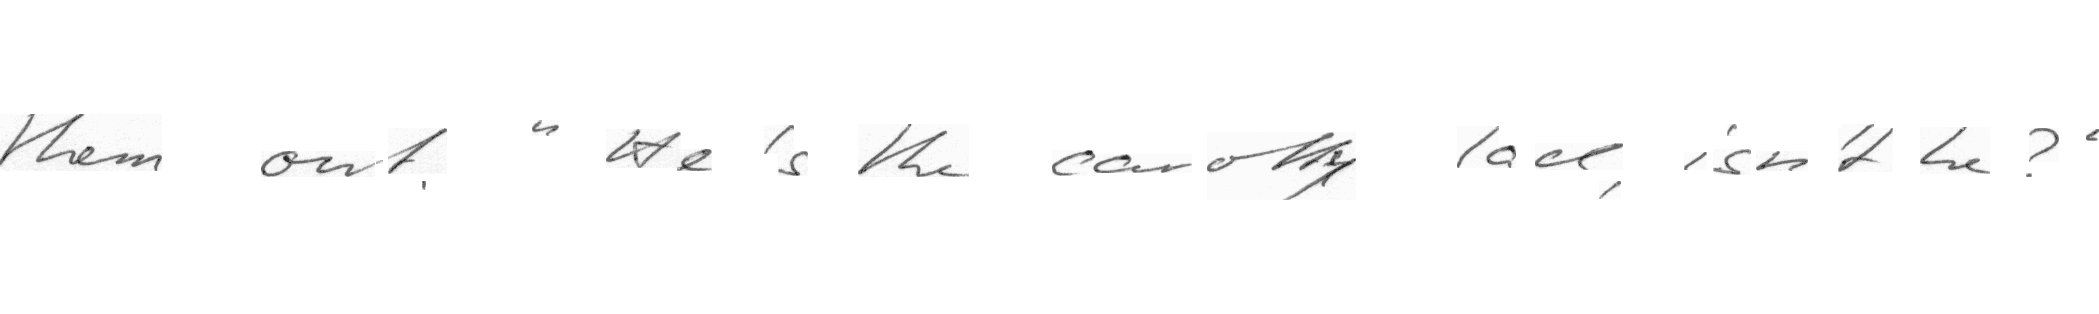 them out. "He's the carotty lad, isn't he?"